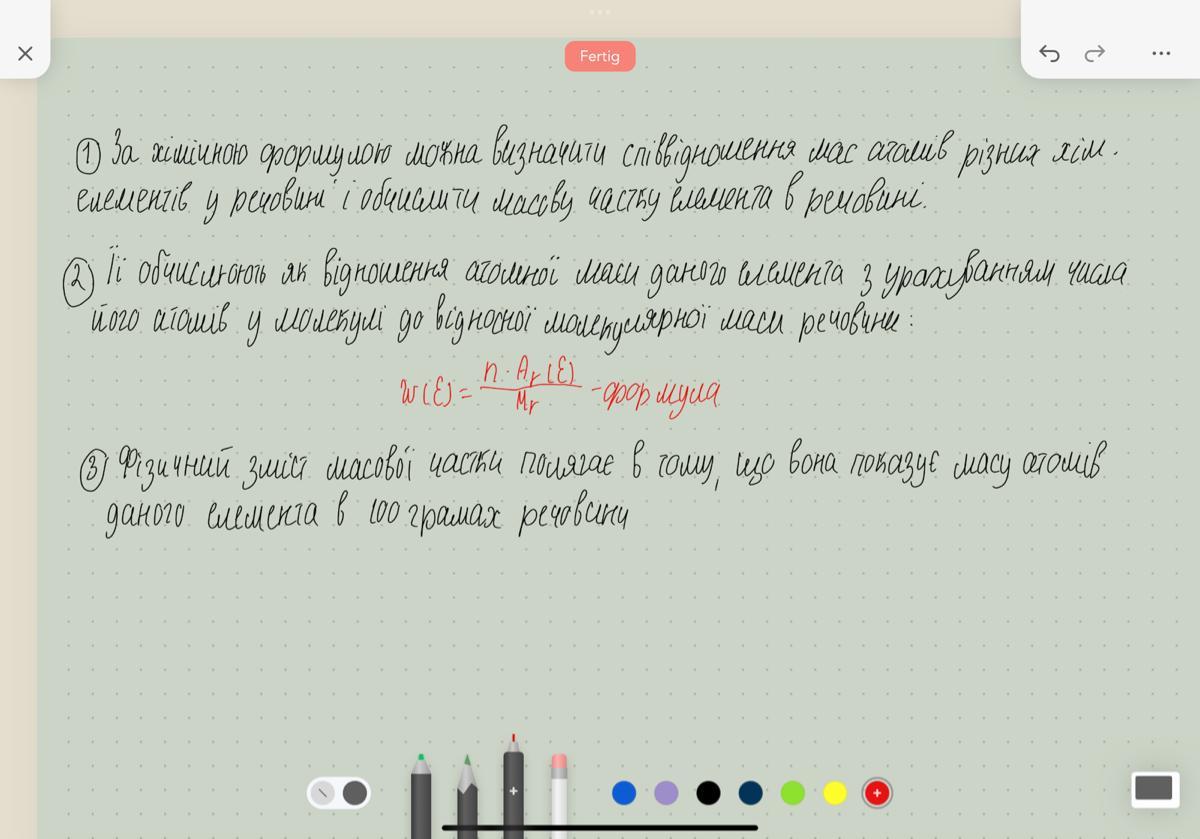 Fertig
① За хімічною формулою можна визначити співвідношення мас атомів різних хім.
елементів у речовині і обчислити масову частку елемента в речовині.
② Її обчислюють як відношення атомної маси даного елемента з урахуванням числа
його атомів у молекулі до відносної молекулярної маси речовини:
w(E) = n · Ar(E) / Mr - формула
③ Фізичний зміст масової частки полягає в тому, що вона показує масу атомів
даного елемента в 100 грамах речовини